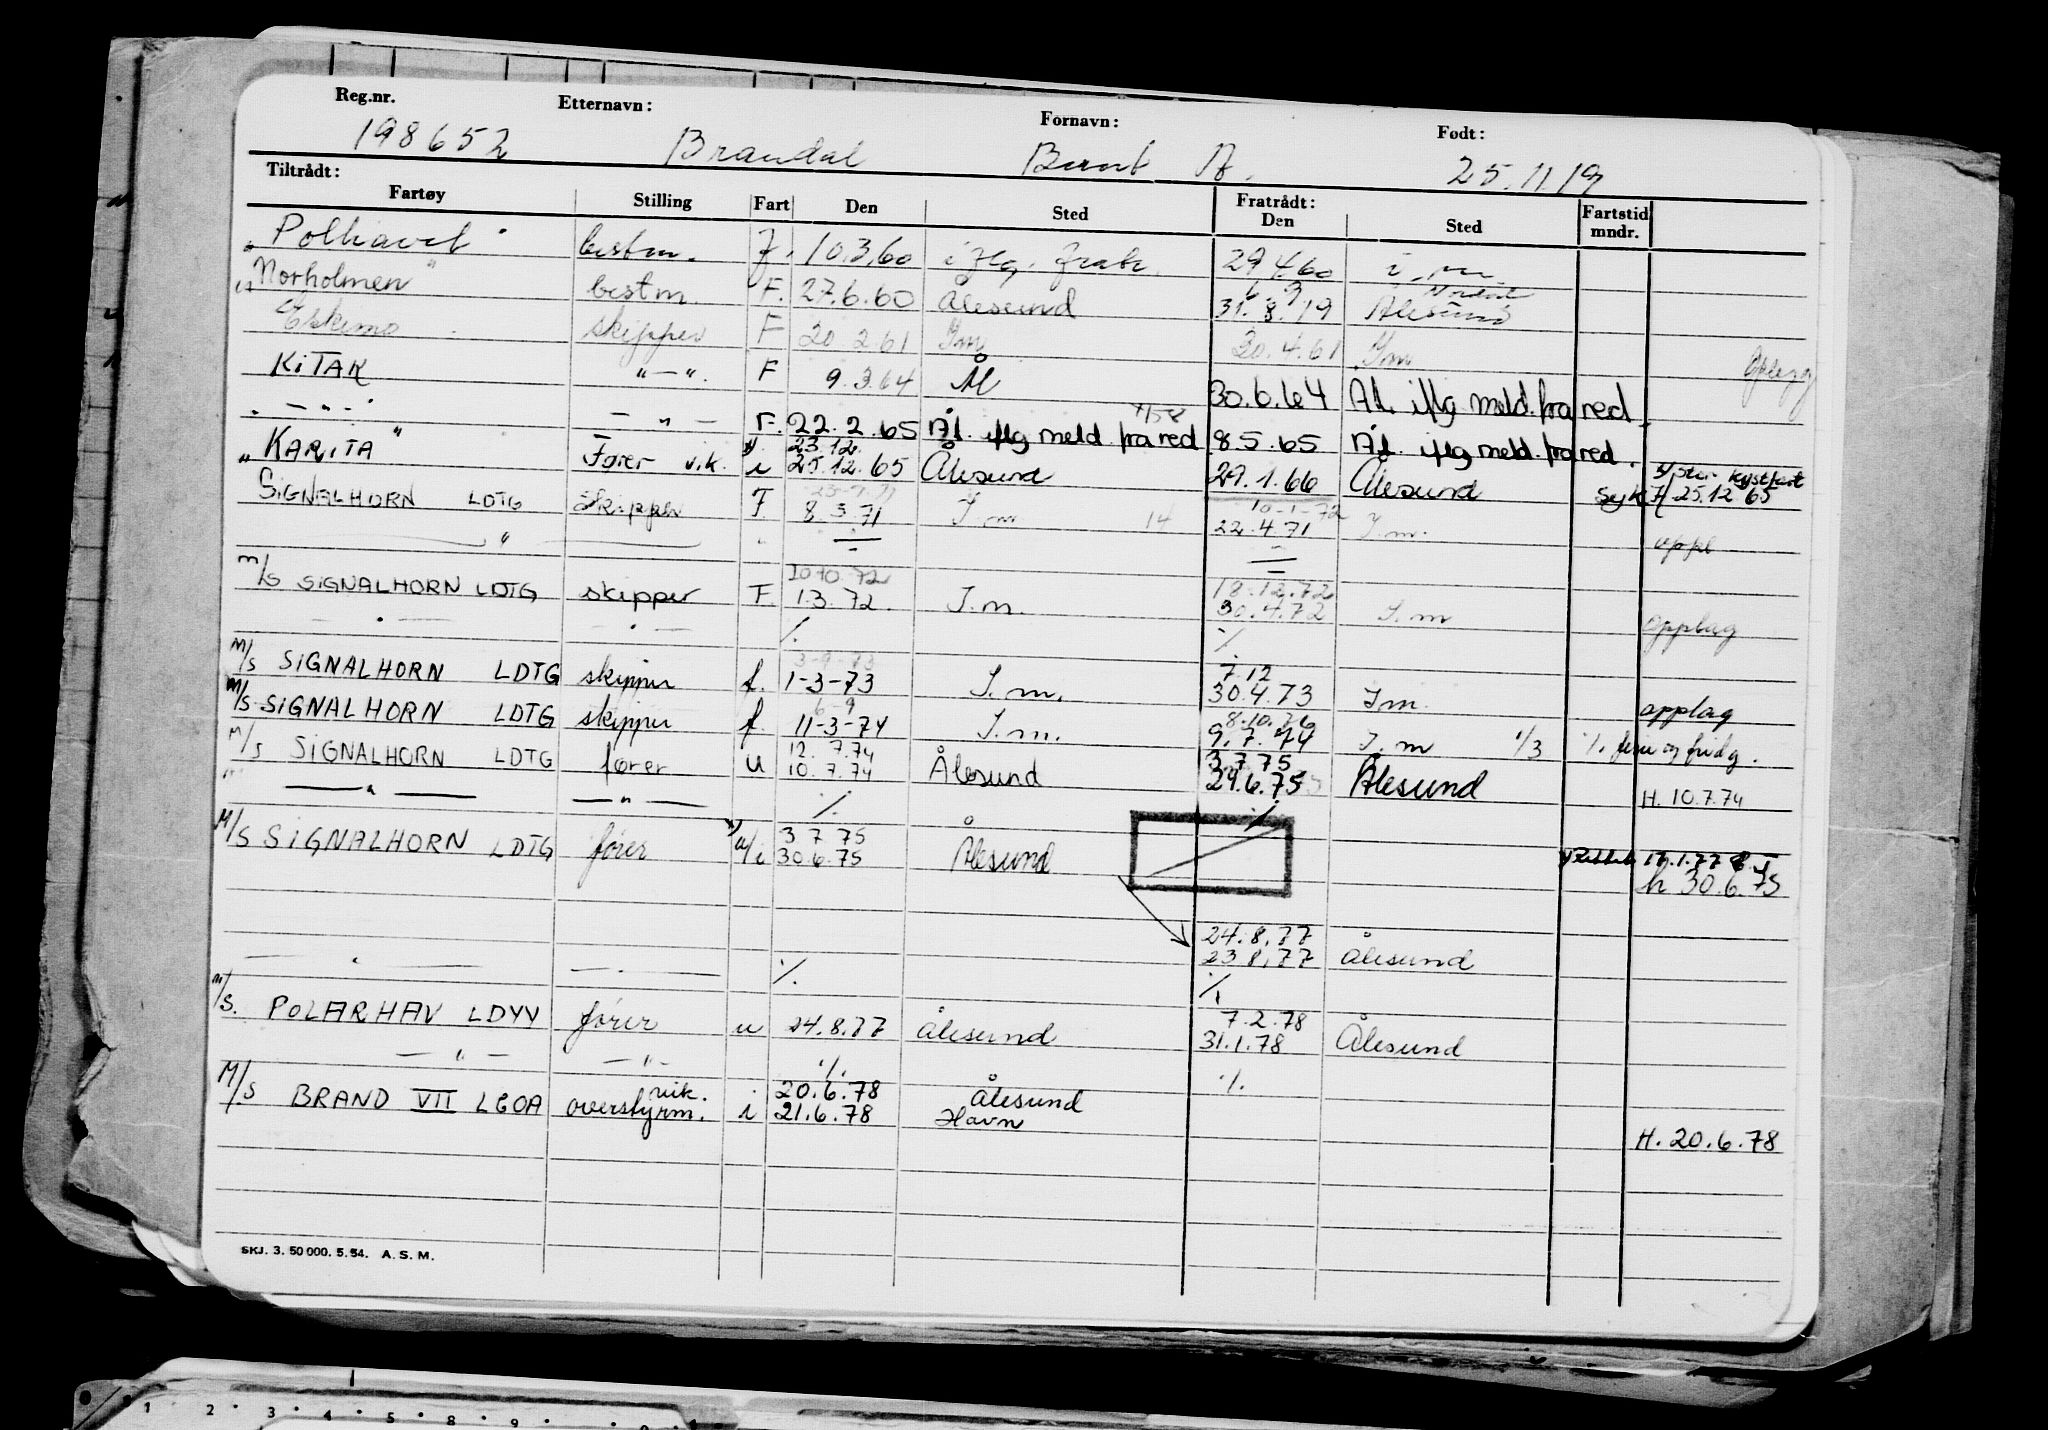 Reg.nr. Etternavn: Fornavn: Født:
198652 Brandal Bernt A. 25.11.19
Tiltrådt: Fratrådt:
Fartøy Stilling Fart Den Sted Den Sted Fartstid mndr.
"Polhavet" bestm. F. 10.3.60 iflg. fratr. 29.4.60 i.m.
"Norholmen" bestm. F. 27.6.60 Ålesund 31.8.19 Ålesund
Eskimo skipper F 20.2.61 I.m 30.4.61 I.m
KITAK " — ". F 9.3.64 Ål 30.6.64 Ål. iflg meld. fra red.
— " — — " — F. 22.2.65 Ål. iflg meld. fra red 8.5.65 Ål. iflg meld. fra red.
23.12.
"KARITA" Fører vik. i 25.12.65 Ålesund 29.1.66 Ålesund Syk H 25.12.65
10-1-72
SIGNALHORN LDTG Skipper F. 8.3.71 I.m 14 22.4.71 I.m. oppl
"
20.10.72 18.12.72
M/S SIGNALHORN LDTG skipper F. 1.3.72. I.m. 30.4.72 I.m opplag
— " — — " — ·/. ·/.
3-9-73 7.12
M/S SIGNALHORN LDTG skipper f. 1-3-73 I.m. 30.4.73 I.m. opplag
6-9 8.10.76
M/S SIGNALHORN LDTG skipper f. 11-3-74 I.m. 9.7.74 I.m 1/3 ·/. ferie og fridg.
12.7.74 3.7.75
M/S SIGNALHORN LDTG fører u 10.7.74 Ålesund 29.6.75 Ålesund H. 10.7.74
— " — — " — ·/. ·/.
3.7.75 17.1.77
M/S SIGNALHORN LDTG fører u/i 30.6.75 Ålesund h 30.6.75
24.8.77
23.8.77 Ålesund
— " — — " — ·/. ·/.
7.2.78
M/S. POLARHAV LDYY fører u 24.8.77 Ålesund 31.1.78 Ålesund
— " — — " — ·/. ·/.
vik. 20.6.78 Ålesund
M/S BRAND VII LGOA overstyrm. i 21.6.78 Havn H. 20.6.78
SKJ. 3. 50 000. 5. 54. A. S. M.
1 2 3 4 5 8 9